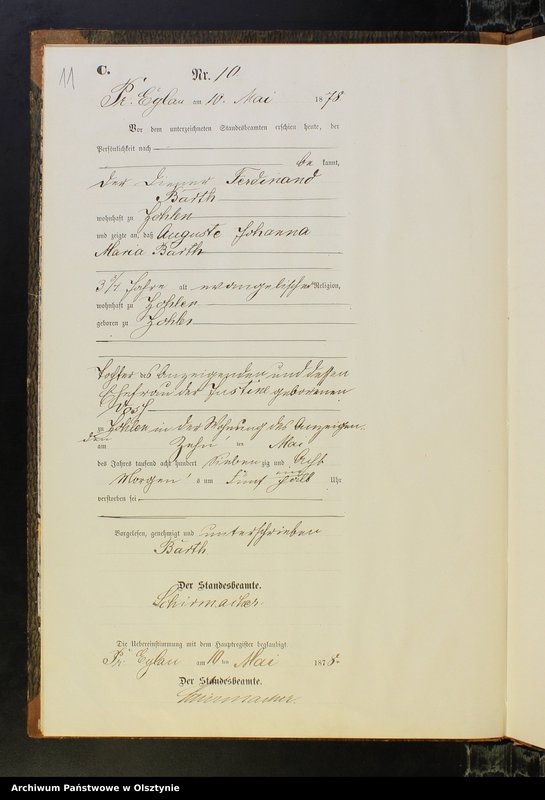 11
C.
Nr. 10
Pr. Eylau am 10. Mai 1878
Vor dem unterzeichneten Standesbeamten erschien heute, der
Persönlichkeit nach
be kannt,
der Diener Ferdinand
Barth
wohnhaft zu Zohlen
und zeigte an, daß Auguste Johanna
Maria Barth
3 3/4 Jahre alt evangelischer Religion,
wohnhaft zu Zohlen
geboren zu Zohlen
Tochter des Anzeigenden und dessen
Ehefrau der Justine geborenen
zu Zohlen in der Wohnung des Anzeigen-
den
am Zehn ten Mai
des Jahres tausend acht hundert sieben zig und Acht
Morgen s um fünf ein halb Uhr
verstorben sei
Vorgelesen, genehmigt und unterschrieben
Barth
Der Standesbeamte.
Schirmacher
Die Uebereinstimmung mit dem Hauptregister beglaubigt
Pr. Eylau am 10 ten Mai 1878.
Der Standesbeamte.
Schirmacher.
Archiwum Państwowe w Olsztynie